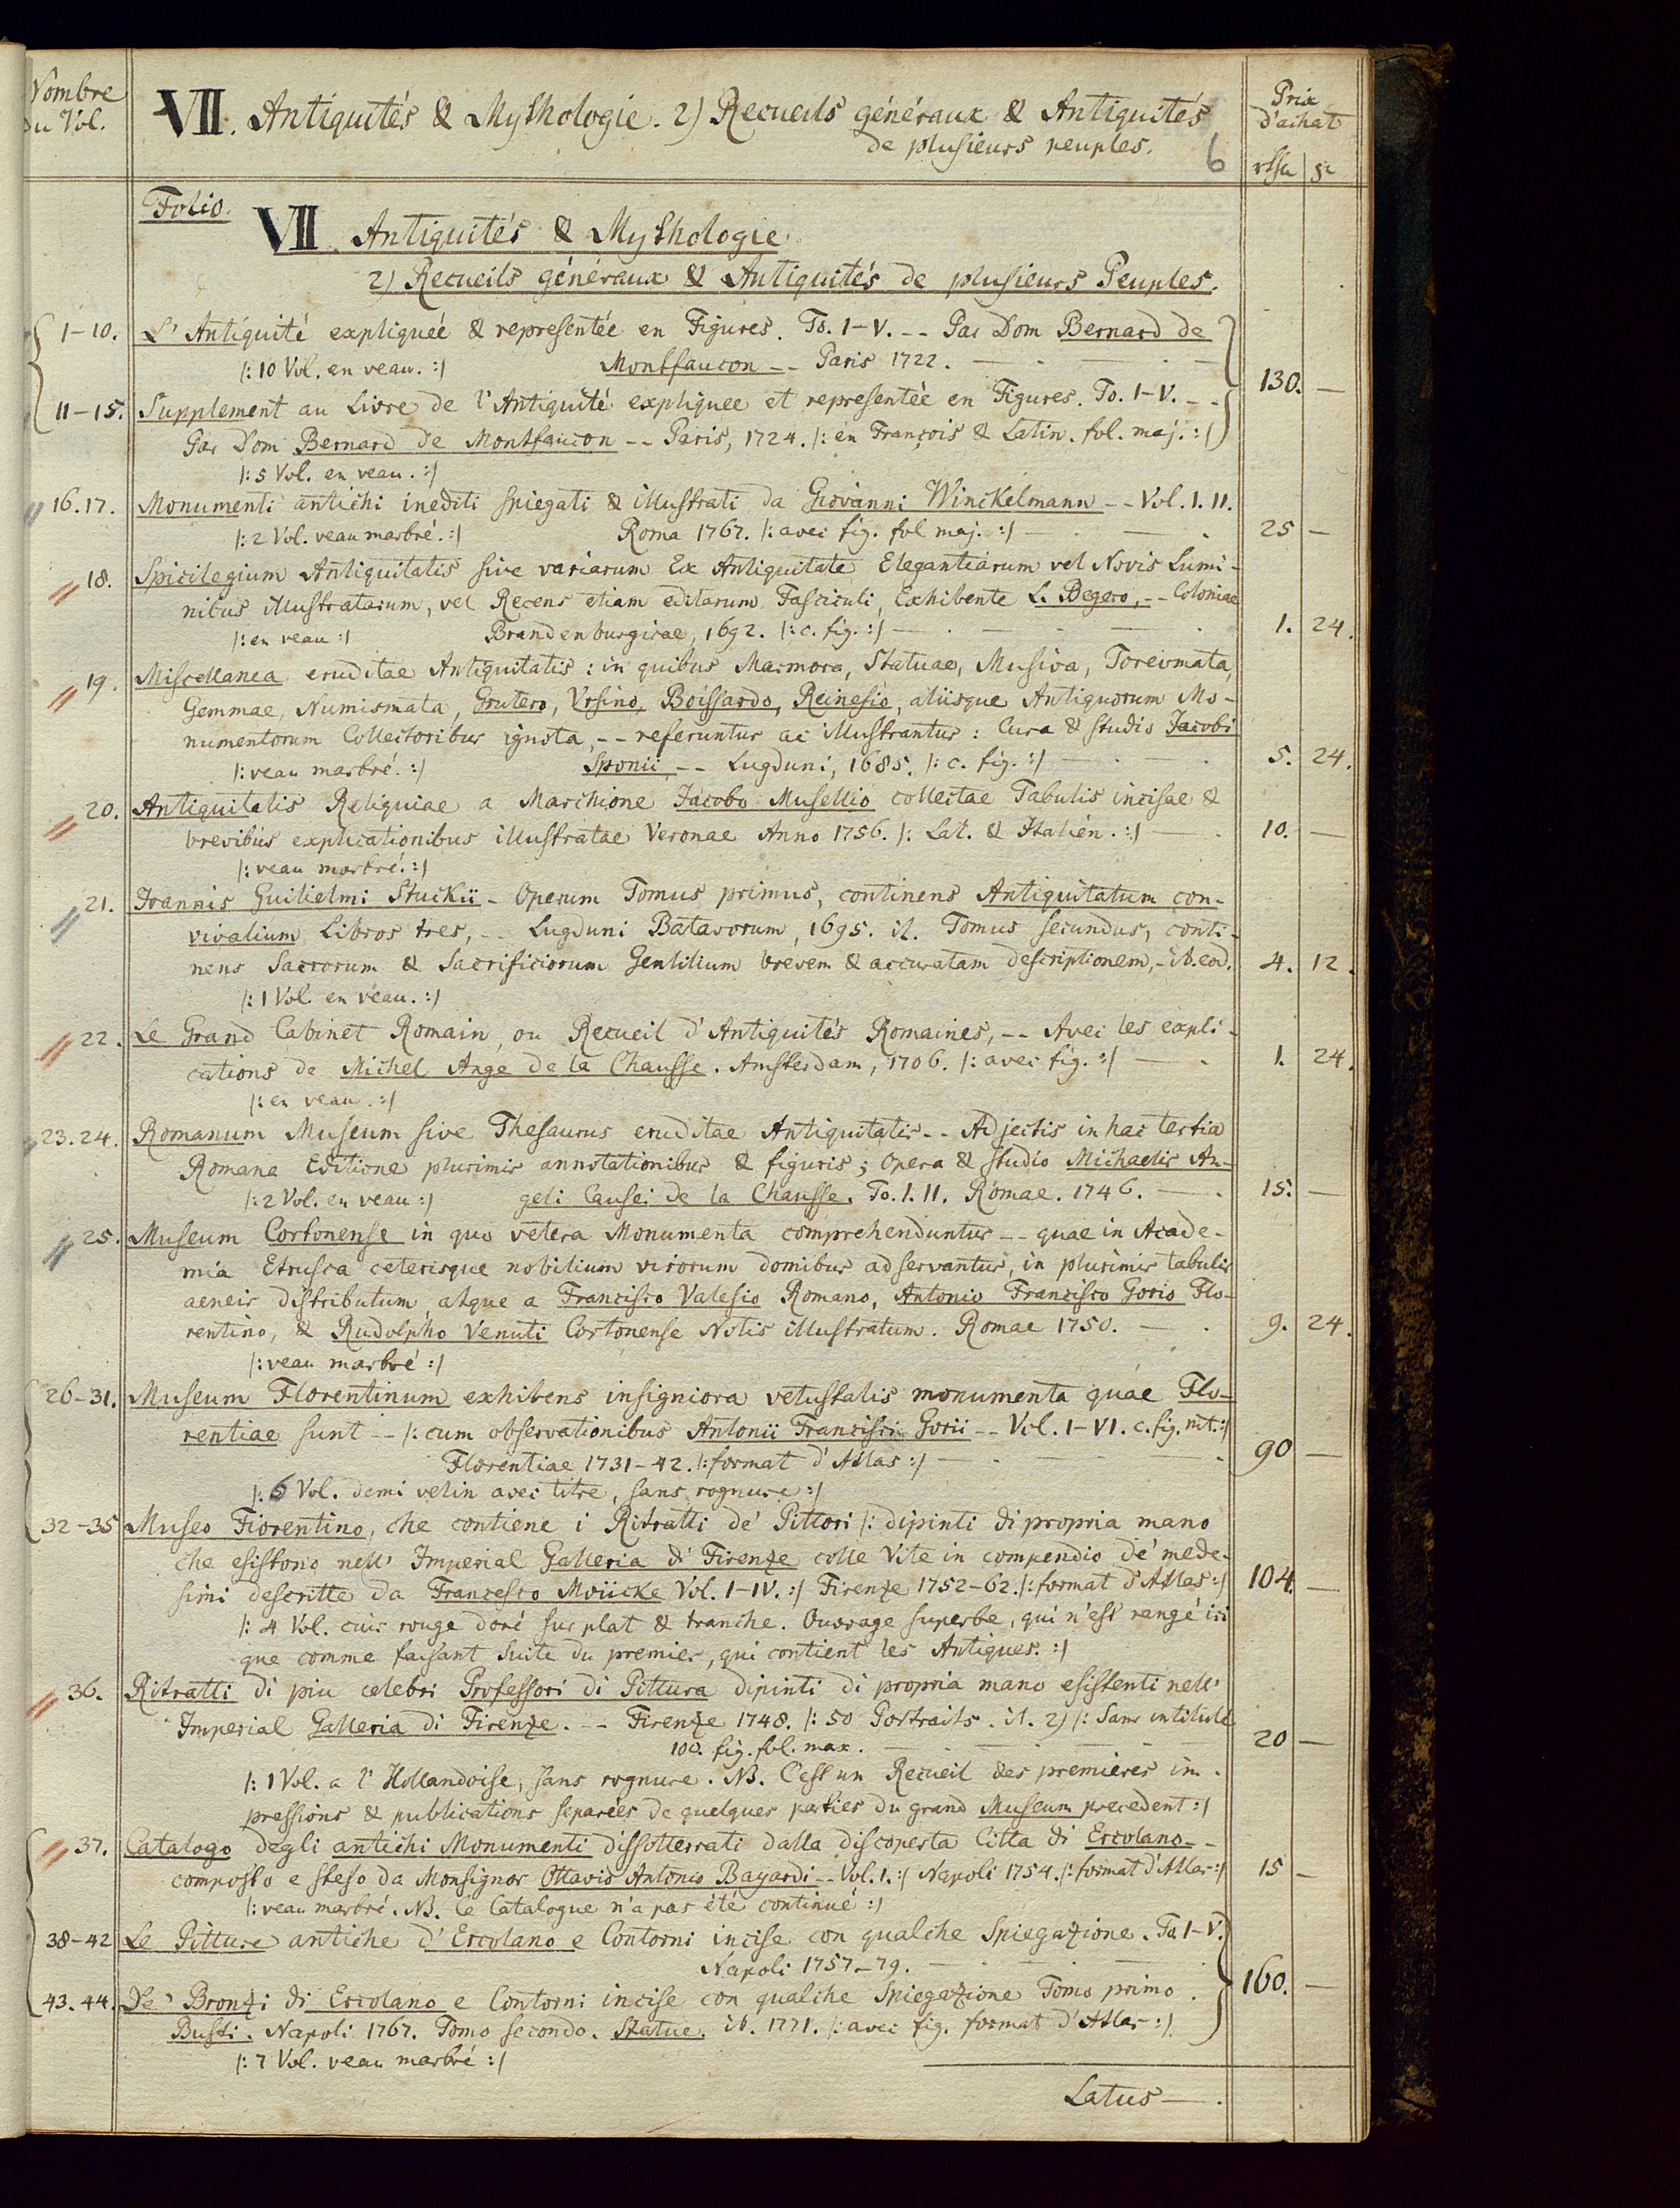 Nombre
du Vol.
VII. Antiquités & Mythologie. 2) Recueils généraux & Antiquités
de plusieurs peuples.
6
Prix
d'achat
Folio.
VII. Antiquités & Mythologie.
2) Recueils généraux & Antiquités de plusieurs Peuples.
1-10. L'Antiquité expliqueé & representée en Figures. To. I-V. -- Par Dom Bernard de
|: 10 Vol. en veau. :| Montfaucon -- Paris 1722. 130. —
11-15. Supplement au Livre de l'Antiquité expliquee et representée en Figures. To. I-V. --
Par Dom Bernard de Montfaucon -- Paris, 1724. |: en François & Latin. fol. maj. :|
|: 5 Vol. en veau. :|
16.17. Monumenti antichi inediti spiegati & illustrati da Giovanni Winckelmann -- Vol. I. II.
|: 2 Vol. veau marbré. :| Roma 1767. |: avec fig. fol maj. :| 25 —
18. Spicilegium Antiquitatis sive variarum Ex Antiquitate Elegantiarum vel Novis Lumi-
nibus illustratarum, vel Recens etiam editarum Fasciculi, Exhibente L. Begero, -- Coloniae
|: en veau :| Brandenburgicae, 1692. |: c. fig. :| 1. 24.
19. Miscellanea eruditae Antiquitatis: in quibus Marmora, Statuae, Musiva, Toreumata,
Gemmae, Numismata, Grutero, Ursino, Boissardo, Reinesio, aliisque Antiquorum Mo-
numentorum Collectoribus ignota, -- referuntur ac illustrantur: Cura & studio Jacobi
|: veau marbré. :| Sponii -- Lugduni, 1685. |: c. fig. :| 5. 24.
20. Antiquitatis Reliquiae a Marchione Jacobo Musellio collectae Tabulis incisae &
brevibus explicationibus illustratae Veronae Anno 1756. |: Lat. & Italién. :| 10. —
|: veau marbré. :|
21. Joannis Guilielmi Stuckii - Operum Tomus primus, continens Antiquitatum con-
vivalium Libros tres, -- Lugduni Batavorum, 1695. it. Tomus secundus, conti-
nens Sacrorum & Sacrificiorum Gentilium brevem & accuratam descriptionem, - ib. eod. 4. 12.
|: 1 Vol. en veau. :|
22. Le Grand Cabinet Romain, ou Recueil d'Antiquités Romaines, -- Avec les expli-
cations de Michel Ange de la Chausse. Amsterdam, 1706. |: avec fig. :| 1. 24.
|: en veau. :|
23.24. Romanum Museum sive Thesaurus eruditae Antiquitatis -- Adjectis in hac tertia
Romana Editione plurimis annotationibus & figuris; Opera & studio Michaelis An-
|: 2 Vol. en veau :| geli Causei de la Chausse. To. I. II. Romae. 1746. 15. —
25. Museum Cortonense in quo vetera Monumenta comprehenduntur -- quae in Acade-
mia Etrusca ceterisque nobilium virorum domibus adservantur, in plurimis tabulis
aeneis distributum, atque a Francisco Valesio Romano, Antonio Francisco Gorio Flo-
rentino, & Rudolpho Venuti Cortonense Notis illustratum. Romae 1750. 9. 24.
|: veau marbré :|
26-31. Museum Florentinum exhibens insigniora vetustatis monumenta quae Flo-
rentiae sunt -- |: cum observationibus Antonii Francisci Gorii -- Vol. I-VI. c. fig. nit. :|
Florentiae 1731-42. |: format d'Atlas :| 90 —
|: 6 Vol. demi velin avec titre, sans rognure :|
32-35 Museo Fiorentino, che contiene i Ritratti de' Pittori |: dipinti di propria mano
che esistono nell' Imperial Galleria di Firenze colle Vite in compendio de' mede-
simi descritte da Francesco Moücke Vol. I-IV. :| Firenze 1752-62. |: format d'Atlas :| 104. —
|: 4 Vol. cuir rouge doré sur plat & tranche. Ouvrage superbe, qui n'est rangé ici
que comme faisant Suite du premier, qui contient les Antiques. :|
36. Ritratti di piu celebri Professori di Pittura dipinti di propria mano esistenti nell'
Imperial Galleria di Firenze. -- Firenze 1748. |: 50 Portraits. it. 2) |: Sans intitulé
100. fig. fol. max. 20 —
|: 1 Vol. a l'Hollandoise, sans rognure. NB. C'est un Recueil des premieres im-
pressions & publications separées de quelques parties du grand Museum precedent :|
37. Catalogo degli antichi Monumenti dissotterrati dalla discoperta Citta di Ercolano --
composto e steso da Monsignor Ottavio Antonio Bayardi -- Vol. 1. :| Napoli 1754. |: format d'Atlas :| 15 —
|: veau marbré. NB. Ce Catalogue n'a pas été continué :|
38-42 Le Pitture antiche d'Ercolano e Contorni incise con qualche Spiegazione. To. I-V.
Napoli 1757-79. 160. —
43.44. De' Bronzi di Ercolano e Contorni incise con qualche Spiegazione Tomo primo.
Busti. Napoli 1767. Tomo secondo. Statue. ib. 1771. |: avec fig. format d'Atlas :|
|: 7 Vol. veau marbré :|
Latus —